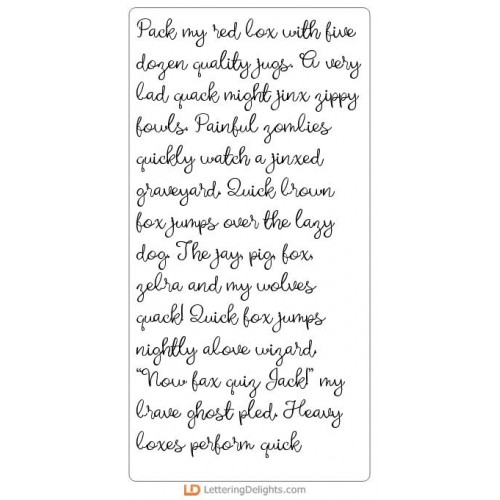 Pack my red box with five
dozen quality jugs. A very
bad quack might jinx zippy
fowls. Painful zombies
quickly watch a jinxed
graveyard. Quick brown
fox jumps over the lazy
dog. The jay, pig, fox,
zebra and my wolves
quack! Quick fox jumps
nightly above wizard.
"Now fax quiz Jack!" my
brave ghost pled. Heavy
boxes perform quick
LD LetteringDelights.com